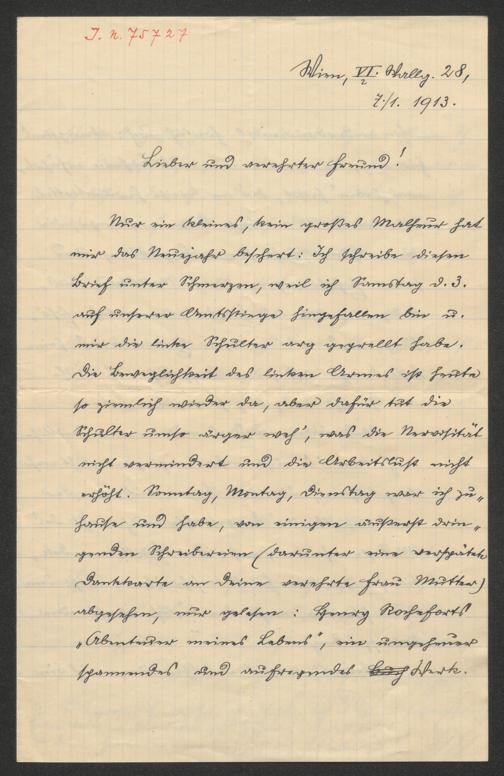 I. N. 75727
Wien, VI. Wallg. 28,
2
7./1. 1913.
Lieber und verehrter Freund!
Nur ein kleines, kein großes Malheur hat
mir das Neujahr beschert: Ich schreibe diesen
Brief unter Schmerzen, weil ich Samstag d. 3.
auf unserer Amtsstiege hingefallen bin u.
mir die linke Schulter arg geprellt habe.
Die Beweglichkeit des linken Armes ist heute
so ziemlich wieder da, aber dafür tut die
Schulter umso ärger weh', was die Nervosität
nicht vermindert und die Arbeitslust nicht
erhöht. Sonntag, Montag, Dienstag war ich zu„
hause und habe, von einigen äußerst drin„
genden Schreibereien (darunter eine verspätete
Dankkarte an Deine verehrte Frau Mutter)
abgesehen, nur gelesen: Henry Rocheforts
„Abenteuer meines Lebens", ein ungeheuer
spannendes und aufregendes Buch Werk.